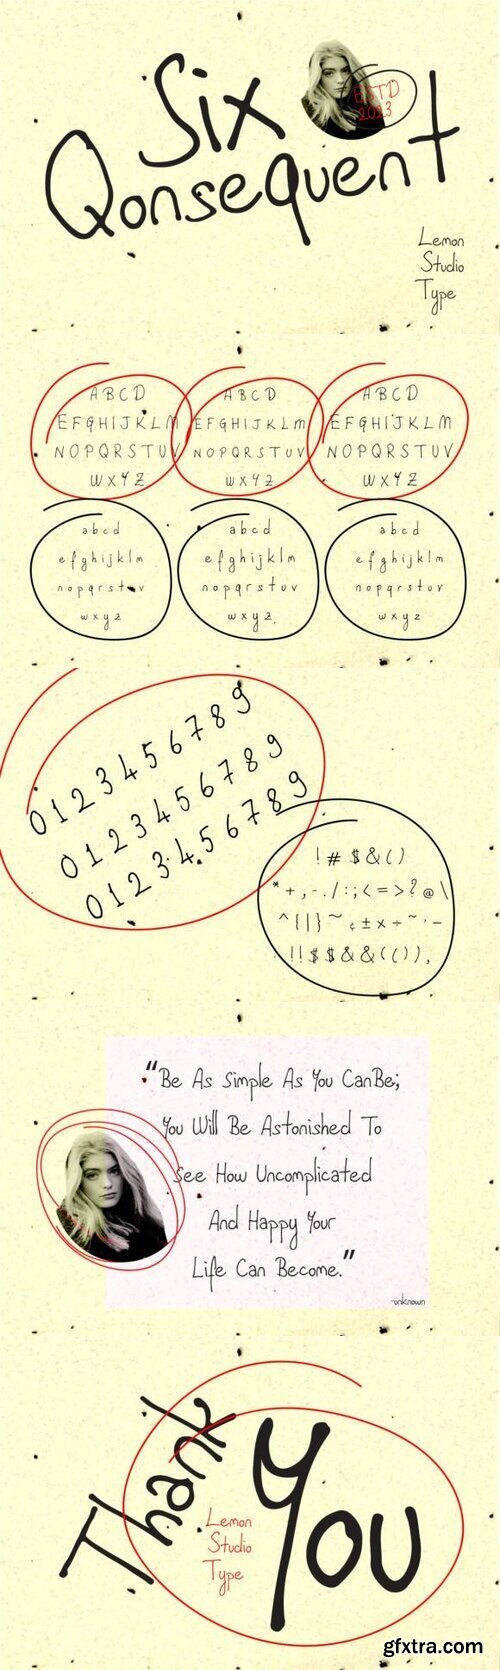 Six
Qonsequent
ESTD
2023
Lemon
Studio
Type
A B C D
E F G H I J K L M
N O P Q R S T U V
W X Y Z
A B C D
E F G H I J K L M
N O P Q R S T U V
W X Y Z
A B C D
E F G H I J K L M
N O P Q R S T U V
W X Y Z
a b c d
e f g h i j k l m
n o p q r s t u v
w x y z
a b c d
e f g h i j k l m
n o p q r s t u v
w x y z
a b c d
e f g h i j k l m
n o p q r s t u v
w x y z
0 1 2 3 4 5 6 7 8 9
0 1 2 3 4 5 6 7 8 9
0 1 2 3 4 5 6 7 8 9
! # $ & ( )
* + , - . / : ; < = > ? @ \
^ { | } ~ ¢ ± × ÷ ~ ' –
! ! $ $ & & ( ( ) ) ,
"Be As Simple As You CanBe;
You Will Be Astonished To
See How Uncomplicated
And Happy Your
Life Can Become."
-unknown
Thank
You
Lemon
Studio
Type
gfxtra.com